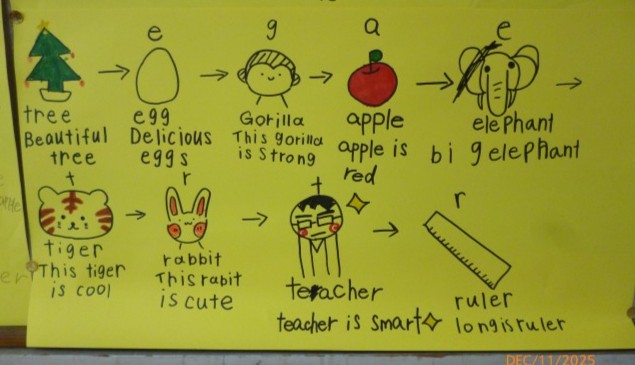 e g a e
tree egg Gorilla apple elephant
Beautiful tree
Delicious eggs
This gorilla is Strong
apple is red
big elephant
t r t r
tiger rabbit teacher ruler
This tiger is cool
This rabit is cute
teacher is smart
long is ruler
DEC/11/2025